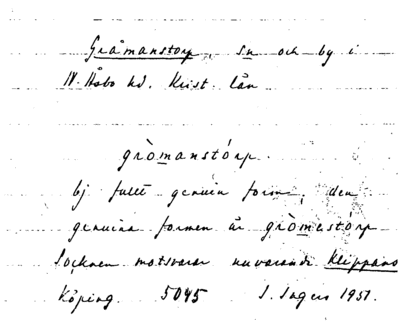 Gråmanstorp, sn och by i
N. Åsbo hd. Krist. län
gròmanstórp.
ej fullt genuin form, den
genuina formen är gròmestórp
Socknen motsvarar nuvarande Klippans
Köping. 5045 S. Ingers 1951.